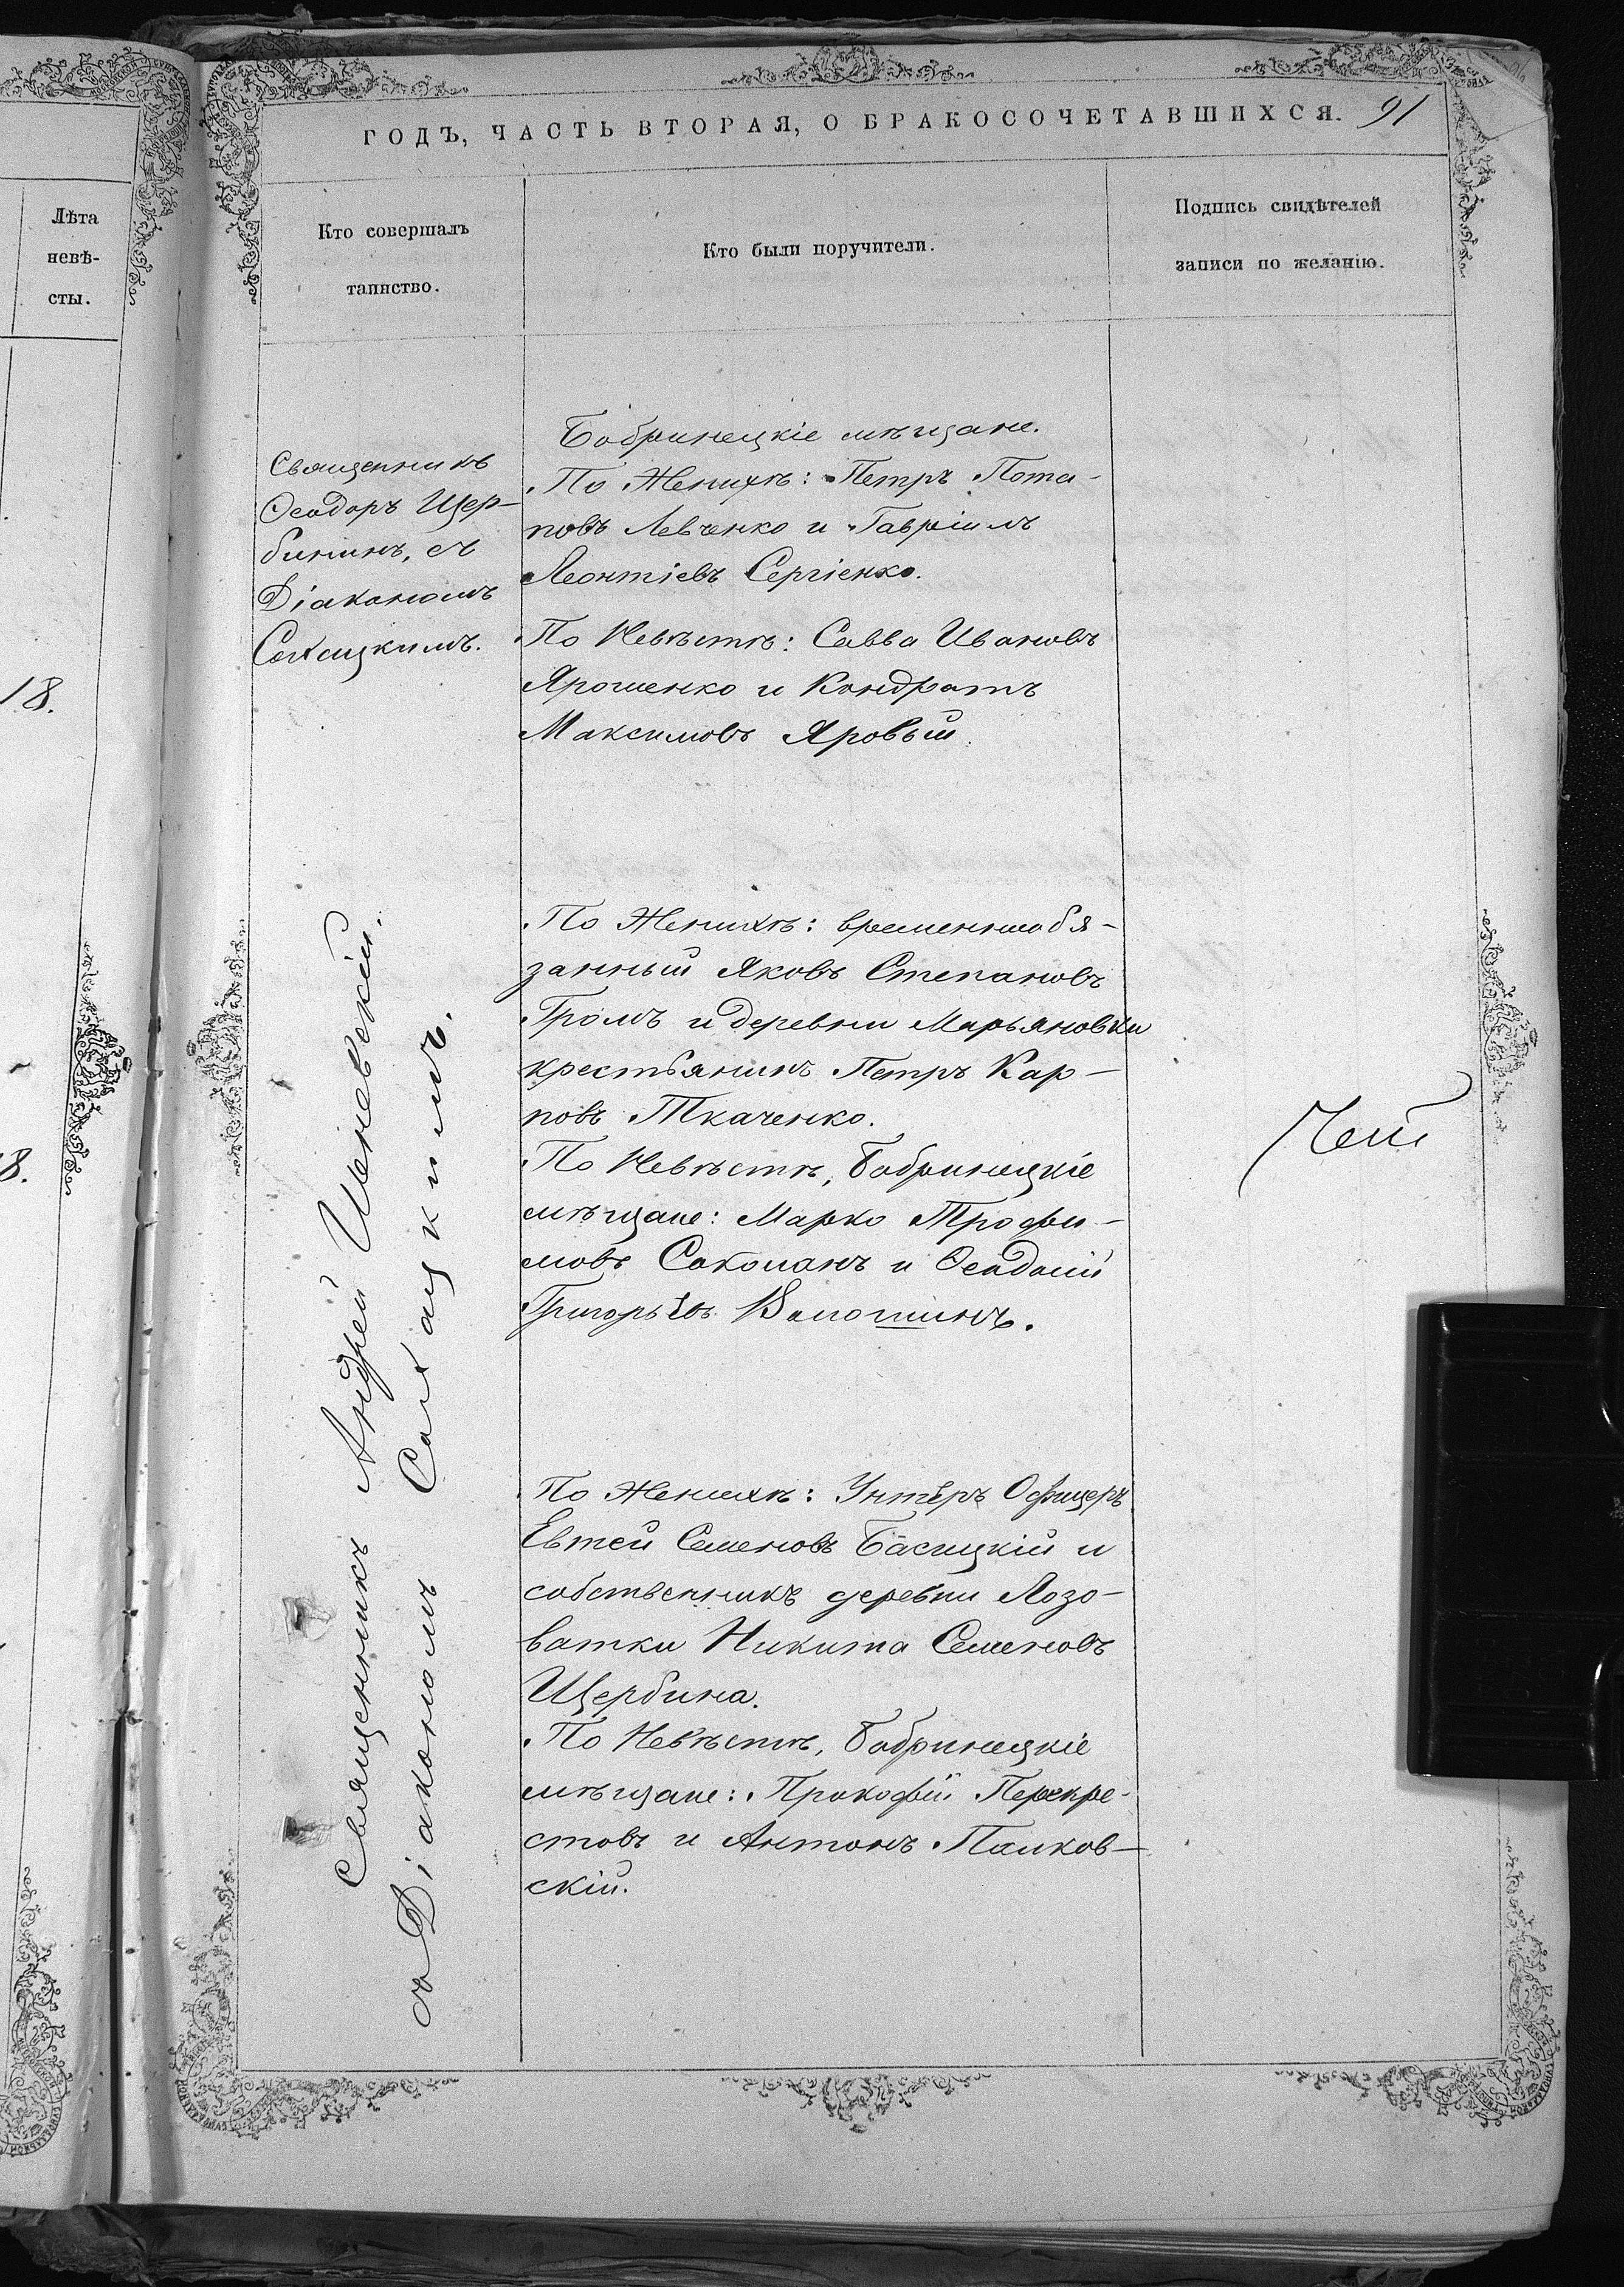 ГОДЪ, ЧАСТЬ ВТОРАЯ, О БРАКОСОЧЕТАВШИХСЯ. 91
Лѣта
невѣ-
сты.
18.
8.
Кто совершалъ
таинство.
Кто были поручители.
Подпись свидѣтелей
записи по желанію.
Священникъ
Ѳеодоръ Щер-
бининъ, съ
Діакономъ
Сѣкацкимъ.
Бобринецкіе мѣщане.
По Женихѣ: Петръ Пота-
повъ Левченко и Гавріилъ
Леонтіевъ Сергіенко.
По Невѣстѣ: Савва Ивановъ
Ярошенко и Кондратъ
Максимовъ Яровый
Священникъ Андрей
съ Діакономъ
По Женихѣ: временнообя-
занный Яковъ Степановъ
Громъ и деревни Марьяновки
крестьянинъ Петръ Кар-
повъ Ткаченко.
По Невѣстѣ, Бобринецкіе
мѣщане: Марко Трофи-
мовъ Соколанъ и Ѳеодосій
Григорьевъ Волошинъ.
По Женихѣ: Унтеръ Офицеръ
Евтей Семеновъ и
собственникъ деревни Лозо-
ватки Никита Семеновъ
Щербина.
По Невѣстѣ, Бобринецкіе
мѣщане: Прокофій Перекре-
стовъ и Антонъ Панков-
скій.